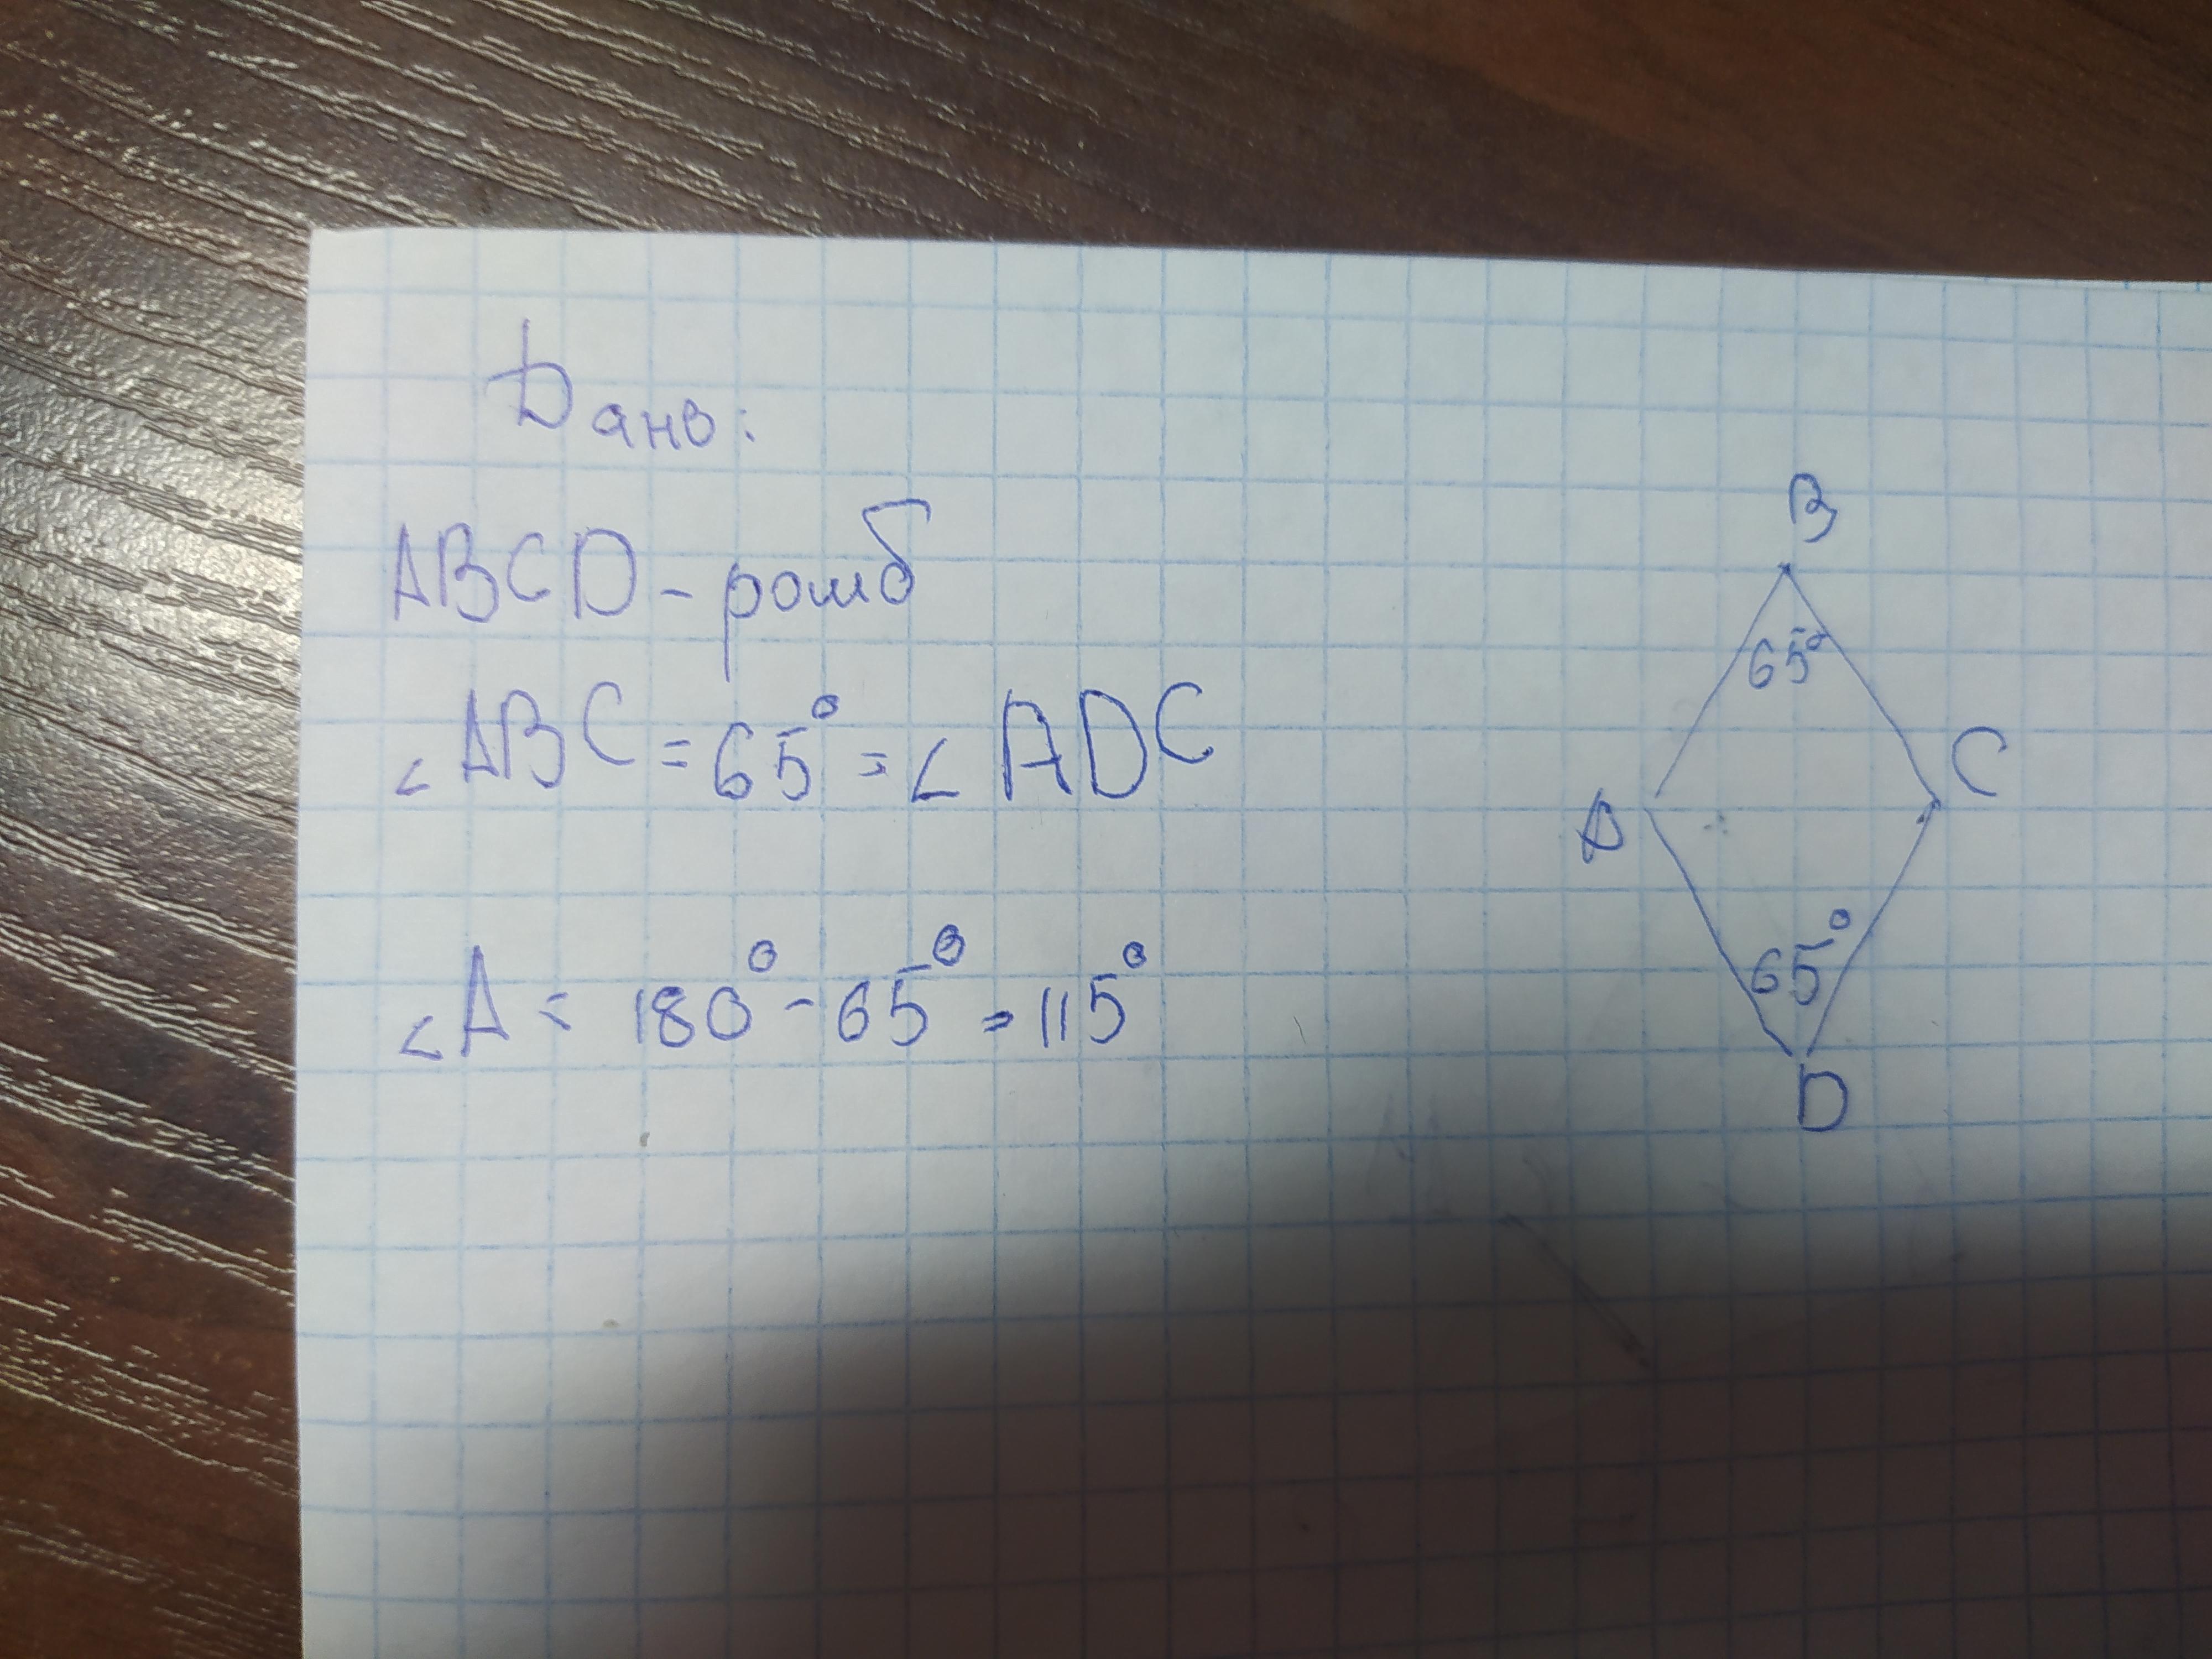 Дано:
ABCD - ромб
∠ABC = 65° = ∠ADC
∠A = 180° - 65° = 115°
B
65°
A
C
65°
D